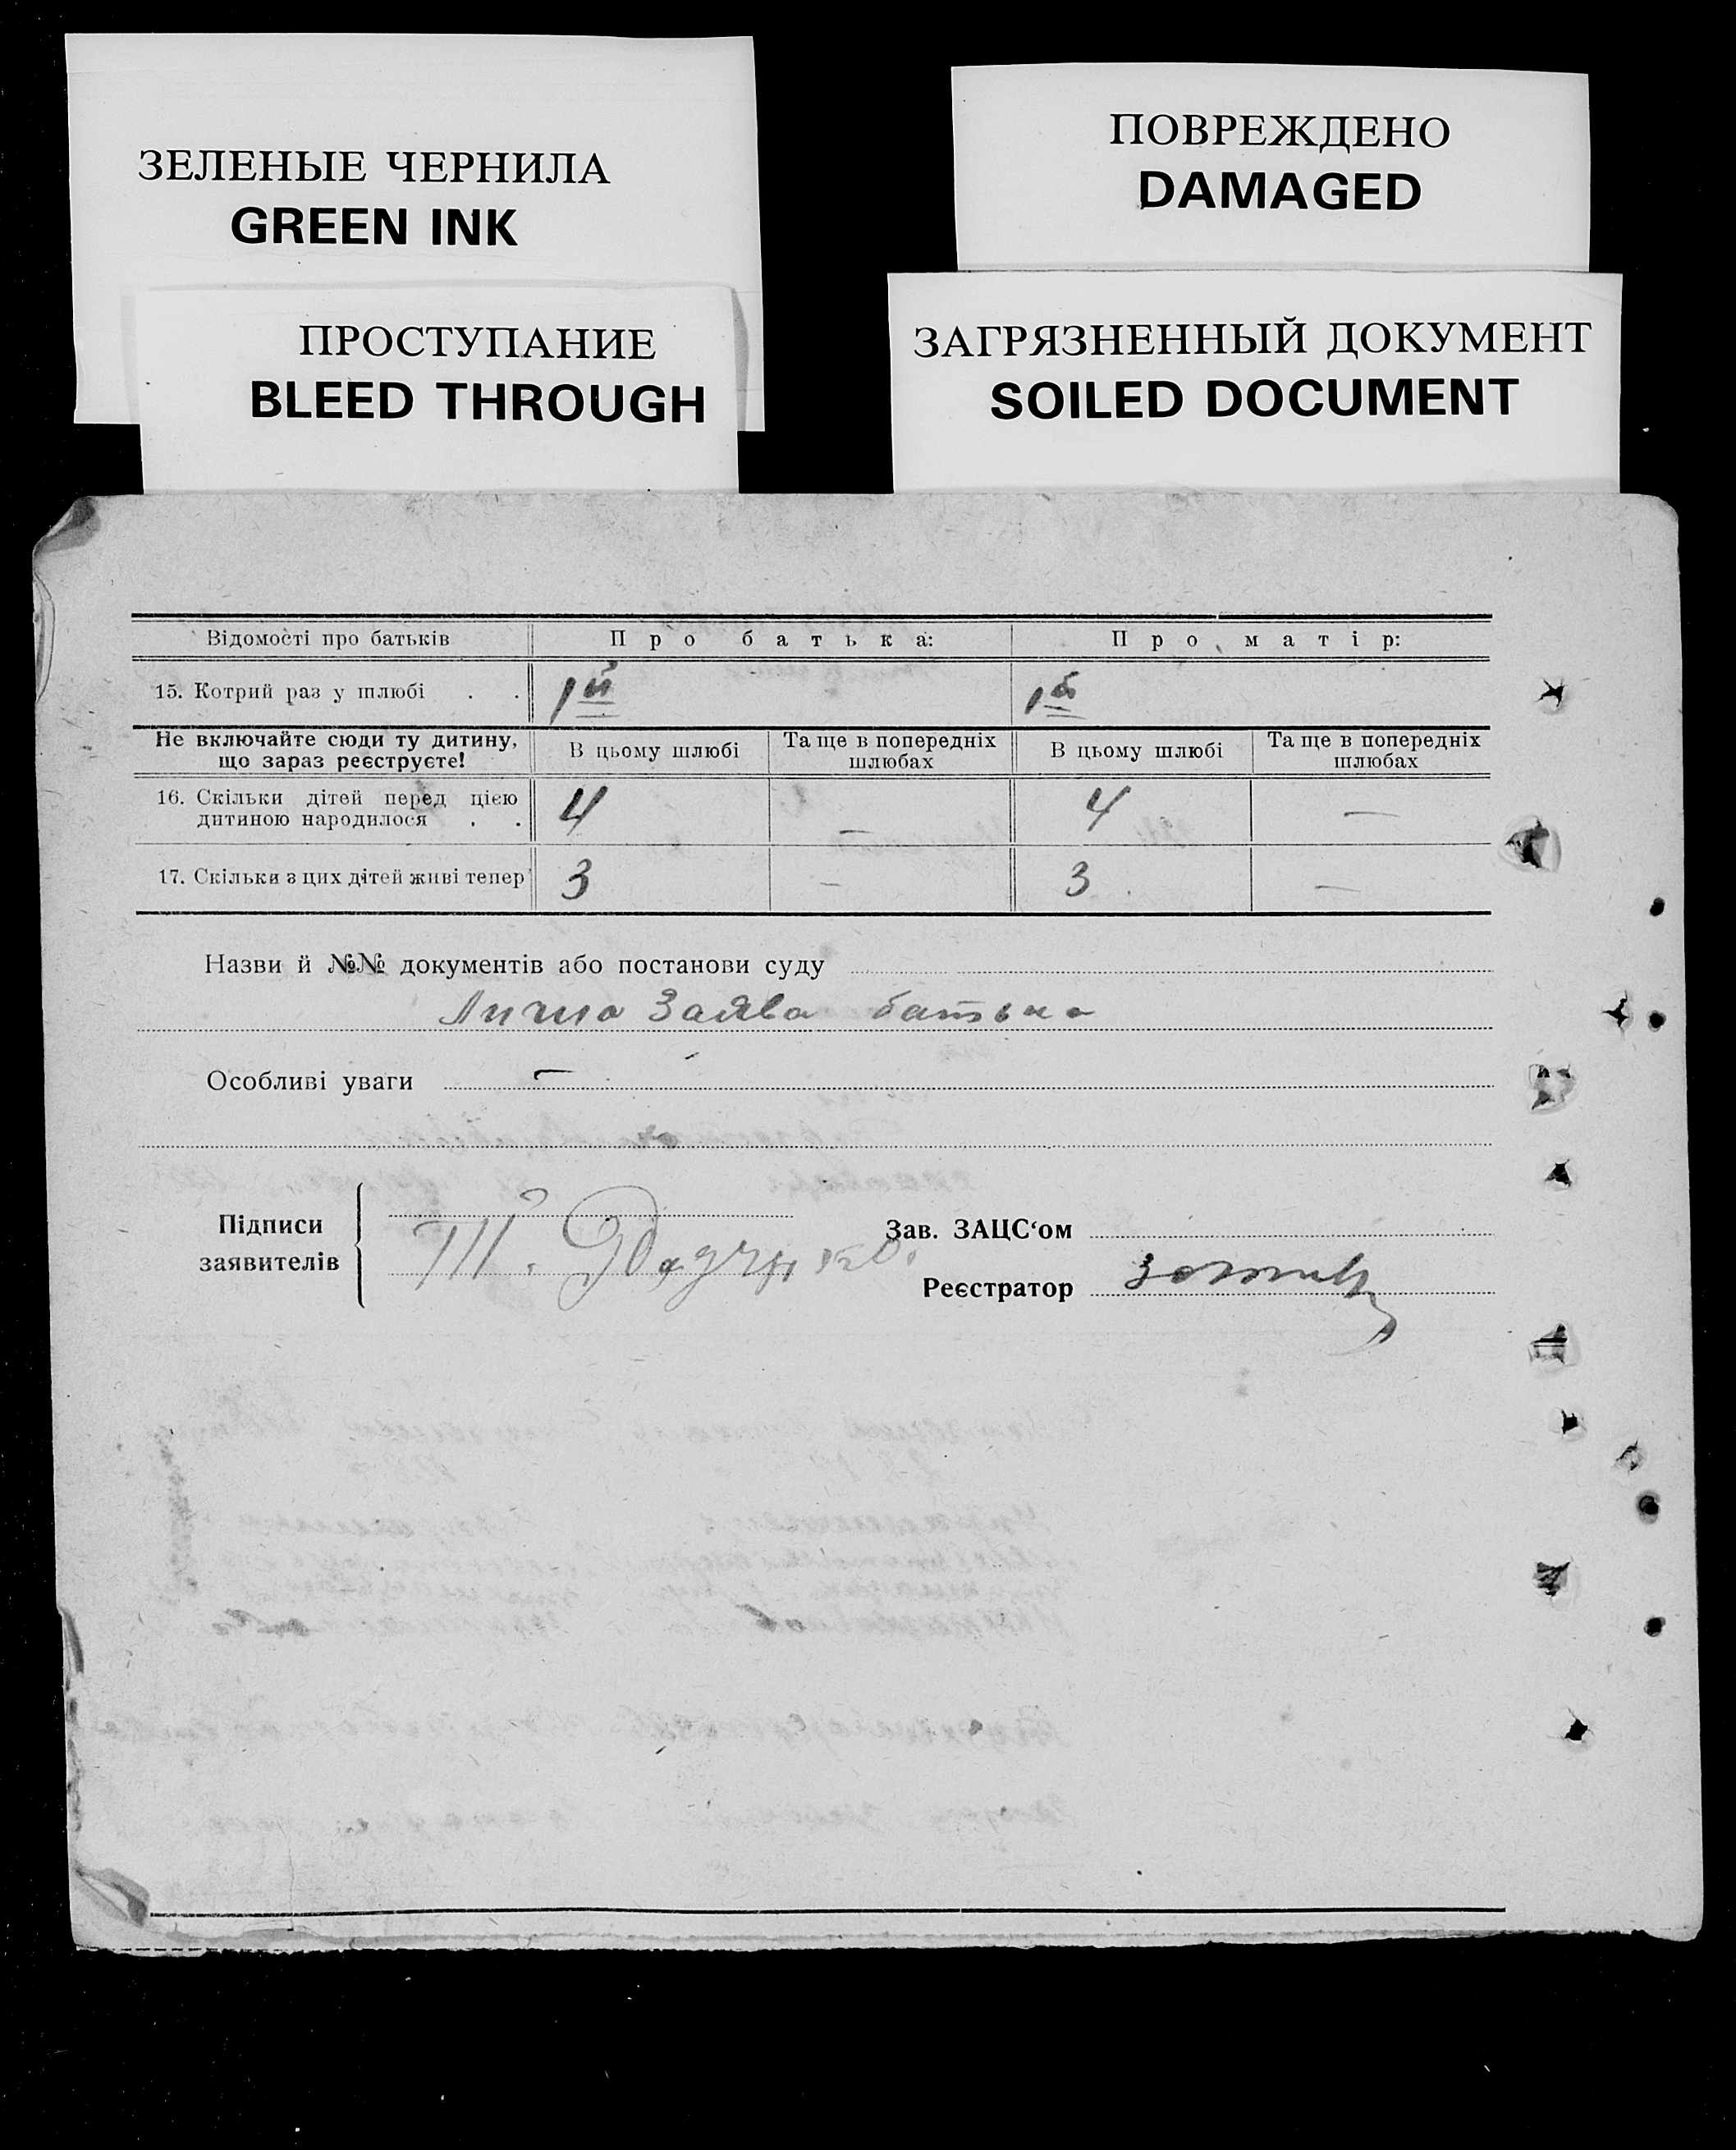 ЗЕЛЕНЫЕ ЧЕРНИЛА
GREEN INK
ПОВРЕЖДЕНО
DAMAGED
ПРОСТУПАНИЕ
BLEED THROUGH
ЗАГРЯЗНЕННЫЙ ДОКУМЕНТ
SOILED DOCUMENT
Відомості про батьків Про батька: Про матір:
15. Котрий раз у шлюбі . . 1й 1й
Не включайте сюди ту дитину, що зараз реєструєте! В цьому шлюбі Та ще в попередніх шлюбах В цьому шлюбі Та ще в попередніх шлюбах
16. Скільки дітей перед цією дитиною народилося . . 4 — 4 —
17. Скільки з цих дітей живі тепер 3 — 3 —
Назви й №№ документів або постанови суду
Лична Заява батька
Особливі уваги —
Підписи заявителів
Зав. ЗАЦС‘ом
Реєстратор